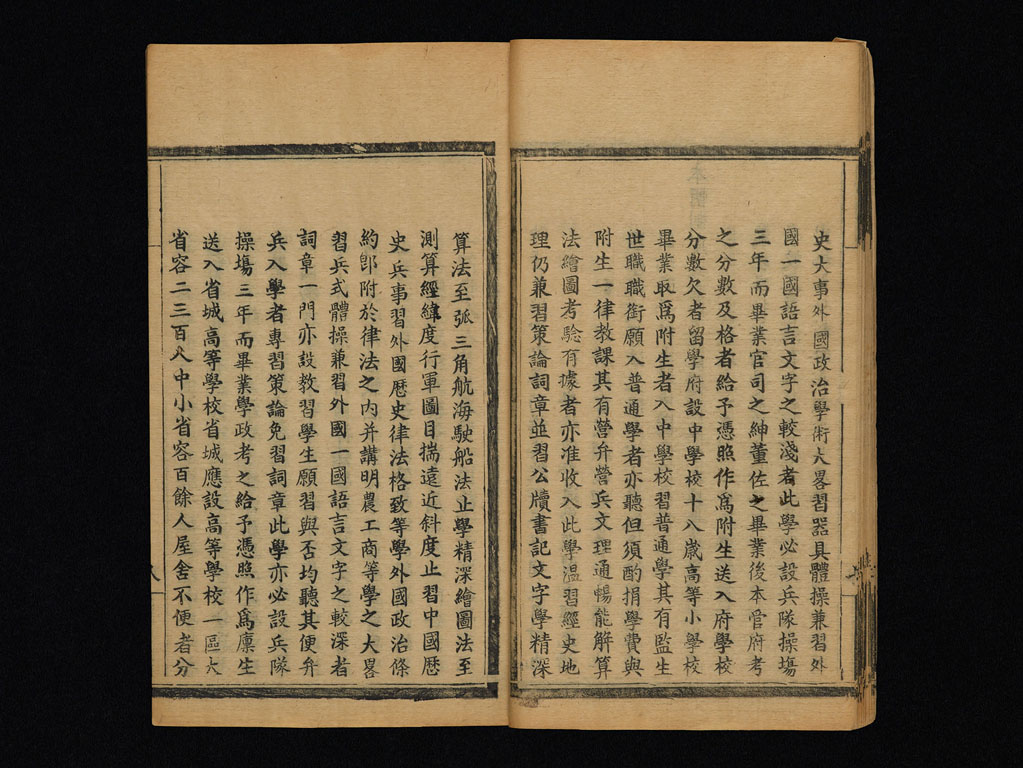 史大事外國政治學術大畧習器具體操兼習外
國一國語言文字之較淺者此學必設兵隊操塲
三年而畢業官司之紳董佐之畢業後本管府考
之分數及格者給予憑照作爲附生送入府學校
分數欠者留學府設中學校十八歲高等小學校
畢業取爲附生者入中學校習普通學其有監生
世職職銜願入普通學者亦聽但須酌捐學費與
附生一律教課其有營弁營兵文理通暢能解算
法繪圖考驗有據者亦准收入此學溫習經史地
理仍兼習策論詞章並習公牘書記文字學精深
算法至弧三角航海駛船法止學精深繪圖法至
測算經緯度行軍圖目揣遠近斜度止習中國歷
史兵事習外國歷史律法格致等學外國政治條
約卽附於律法之內并講明農工商等學之大畧
習兵式體操兼習外國一國語言文字之較深者
詞章一門亦設教習學生願習與否均聽其便弁
兵入學者專習策論免習詞章此學亦必設兵隊
操塲三年而畢業學政考之給予憑照作爲廩生
送入省城高等學校省城應設高等學校一區大
省容二三百人中小省容百餘人屋舍不便者分